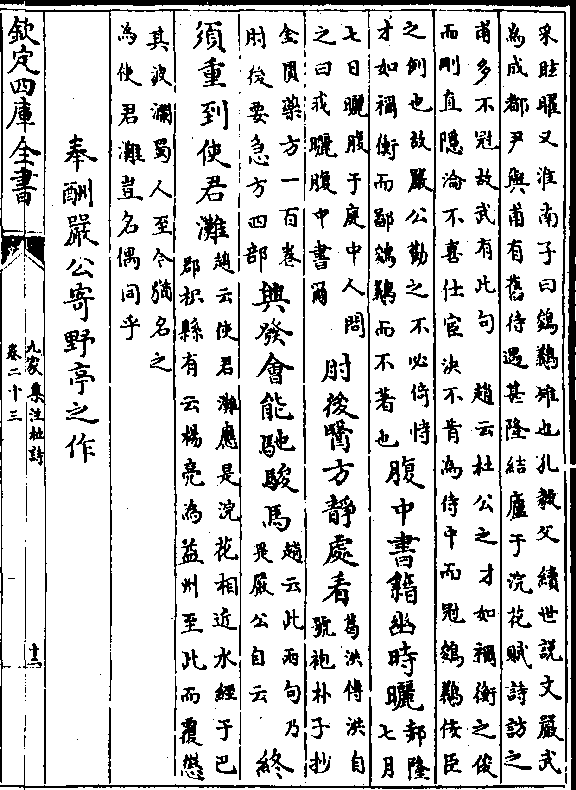 采眭矅又淮南子曰鵕鸃雉也孔毅父續世說文嚴武
為成都尹與甫有舊待遇甚隆結廬于浣花賦詩訪之
甫多不冠故武有此句　趙云杜公之才如禰衡之俊
而剛直隱淪不喜仕宦決不肯為侍中而冠鵕鸃佞臣
之側也故嚴公勸之不必倚恃
才如禰衡而鄙鵕鸃而不著也
腹中書籍幽時曬
郝隆
七月
七日曬腹于庭中人問
之曰我曬腹中書爾
肘後醫方靜處看
葛洪傳洪自
號袍朴子抄
金匱藥方一百巻
肘後要急方四部
興發會能馳駿馬
趙云此兩句乃
是嚴公自云
終
須重到使君灘
趙云使君灘應是浣花相近水經于巴
郡枳縣有云楊亮為益州至此而覆懲
其波瀾蜀人至今猶名之
為使君灘豈名偶同乎
奉酬嚴公寄野亭之作
欽定四庫全書
九家集注杜詩
卷二十三
十二